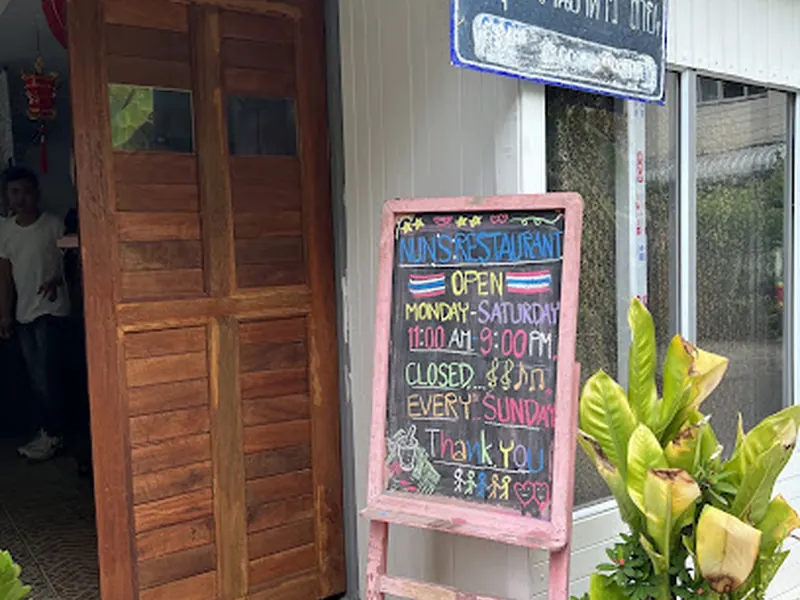 NUN'S RESTAURANT
OPEN
MONDAY-SATURDAY
11:00 AM 9:00 PM.
CLOSED...
EVERY SUNDAY
Thank YOU